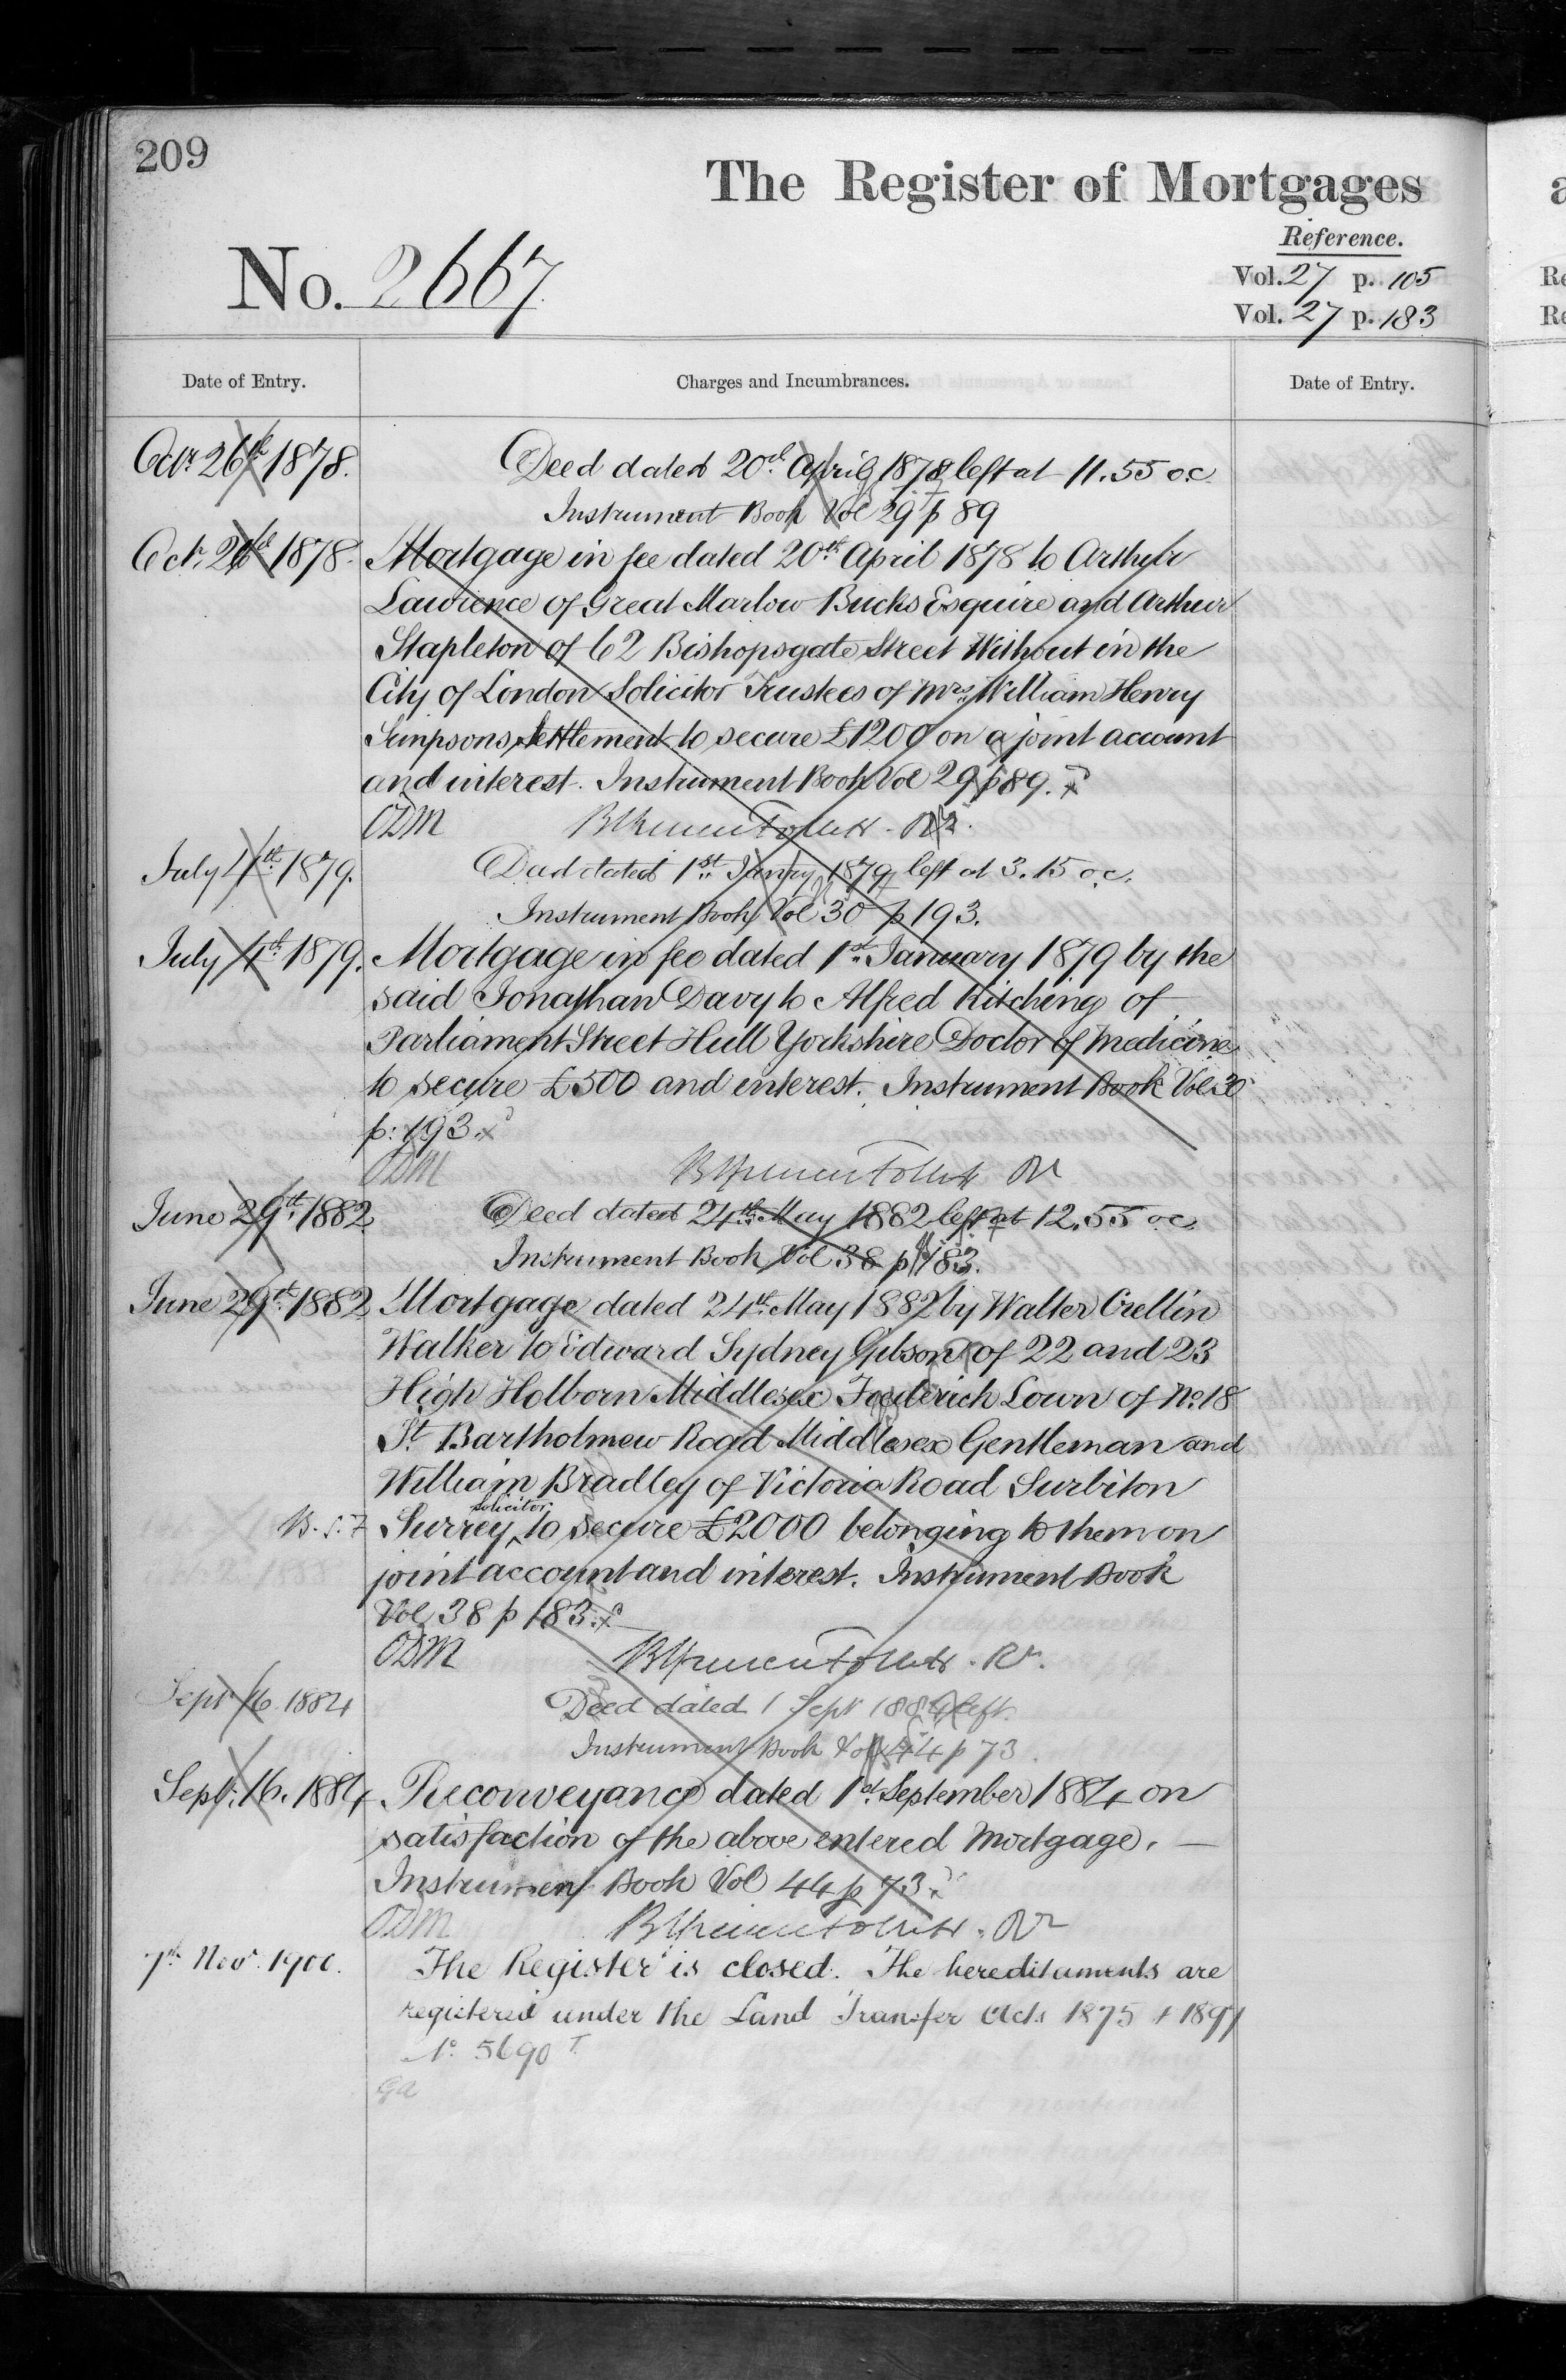 209
The Register of Mortgages
Reference.
No. 2667
Vol. 27 p. 105
Vol. 27 p. 183
Date of Entry.
Charges and Incumbrances.
Date of Entry.
Octr. 26th 1878.
Deed dated 20th April 1878 left at 11.55 o.c.
Instrument Book Vol 29 p 89
Octr. 26th 1878.
Mortgage in fee dated 20th April 1878 to Arthur
Lawrence of Great Marlow Bucks Esquire and Arthur
Stapleton of 62 Bishopsgate Street Without in the
City of London Solicitor Trustees of Mrs. William Henry
Simpsons Settlement to secure £1200 on a joint account
and interest. Instrument Book Vol 29 p 89.
ODM
July 4th 1879.
Deed dated 1st Janry 1879 left at 3.15 o.c.
Instrument Book Vol 30 p 193.
July 4th 1879.
Mortgage in fee dated 1st January 1879 by the
said Jonathan Davy to Alfred Kitching of
Parliament Street Hull Yorkshire Doctor of Medicine
to secure £500 and interest. Instrument Book Vol 30
p: 193.
ODM
June 29th 1882
Deed dated 24th May 1882 left at 12.55 o.c.
Instrument Book Vol 38 p 183.
June 29th 1882
Mortgage dated 24th May 1882 by Walter Crellin
Walker to Edward Sydney Gibson of 22 and 23
High Holborn Middlesex Frederick Lown of No. 18
St. Bartholmew Road Middlesex Gentleman and
William Bradley of Victoria Road Surbiton
solicitor
Surrey to secure £2000 belonging to them on
joint account and interest. Instrument Book
Vol 38 p 183.
ODM
Sept 16 1884
Deed dated 1 Sept 1884 left
Instrument Book Vol 44 p 73
Sept. 16. 1884
Reconveyance dated 1st September 1884 on
satisfaction of the above entered Mortgage. —
Instrument Book Vol 44 p 73.
ODM
7th Novr. 1900.
The Register is closed. The hereditaments are
registered under the Land Transfer Acts 1875 + 1897
No. 5690